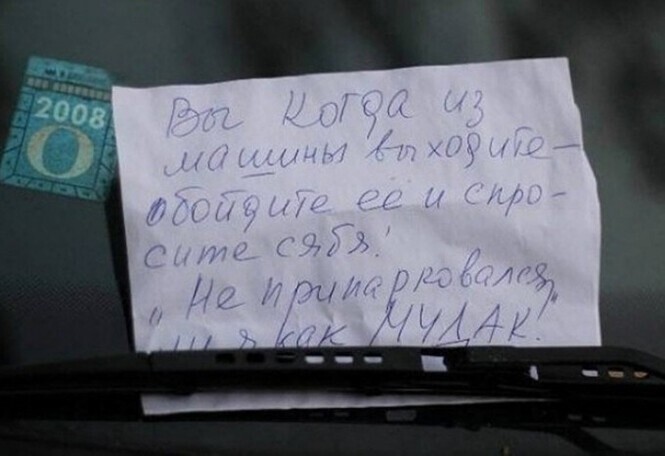 2008
О
Вы когда из
машины выходите -
обойдите её и спро-
сите сябя!
"Не припарковался
ли я как МУДАК."